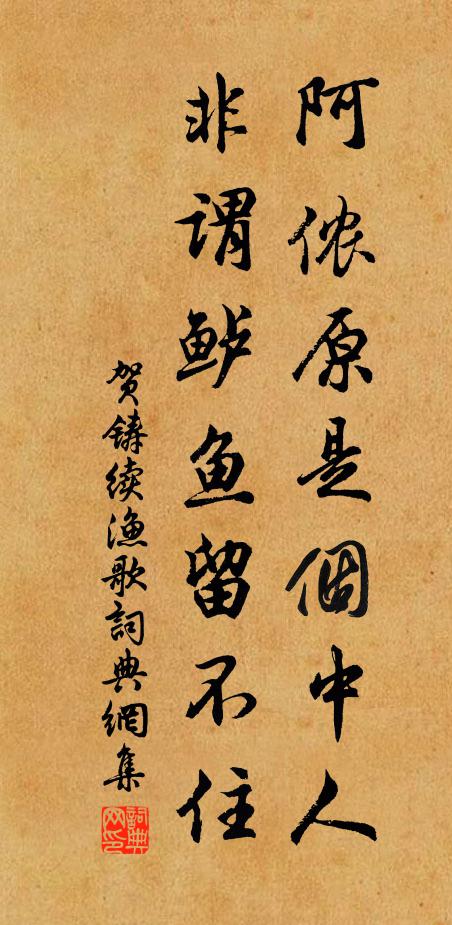 阿侬原是個中人
非谓鲈鱼留不住
贺铸续渔歌詞典網集
詞典
网印